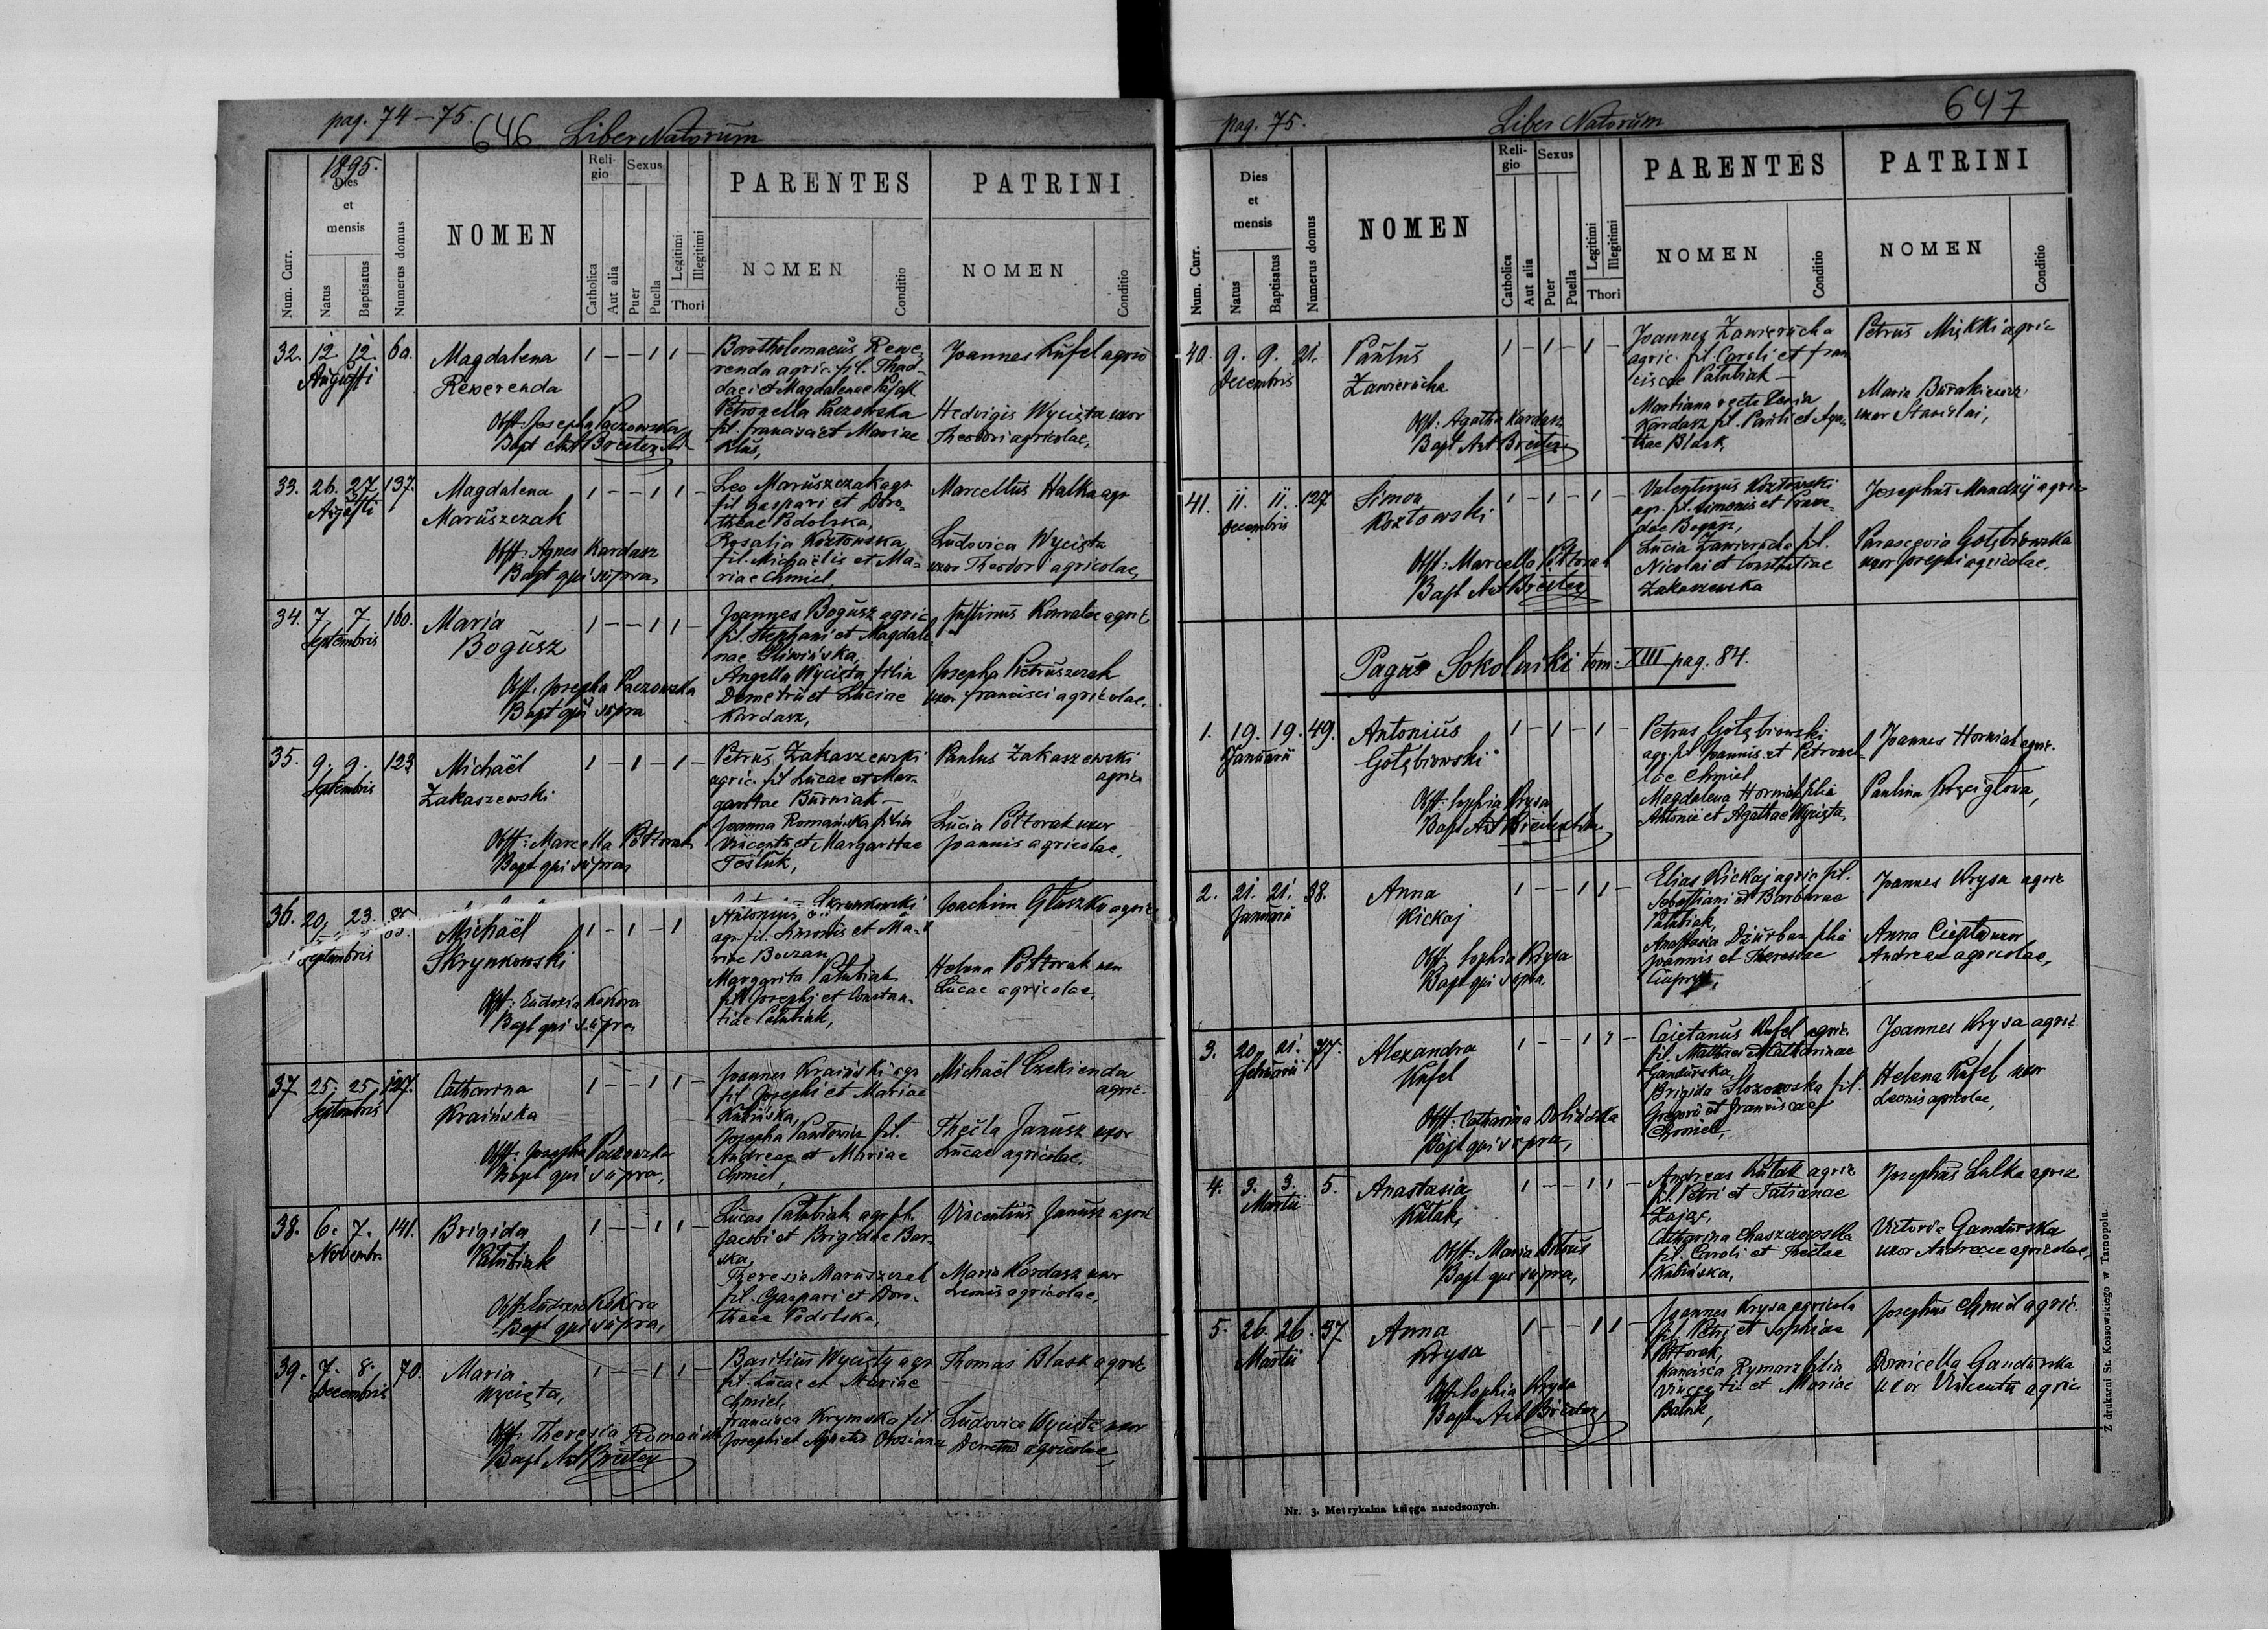 pag. 74-75.
646 Liber Natorum
1895.
Num. Curr.
Dies
et
mensis
Natus
Baptisatus
Numerus domus
NOMEN
Reli-
gio
Catholica
Aut alia
Sexus
Puer
Puella
Legitimi
Illegitimi
Thori
PARENTES
NOMEN
Conditio
PATRINI
NOMEN
Conditio
32. 12. 12. 60.
Augusti
Magdalena
Rewerenda
Obst: Josepha Paczowska
Bapt Ant Breiter
1 — — 1 1 —
Bartholomaeus Rewe-
renda agric. fil. Thad-
daei et Magdalenae Pająk
Petronella Paczowska
fil. Francisci et Mariae
Kluś,
Joannes Kufel agric
Hedvigis Wycięta uxor
Theodori agricolae,
33. 26. 27. 137.
Augusti
Magdalena
Maruszczak
Obst: Agnes Kardasz
Bapt qui supra,
1 — — 1 1 —
Leo Maruszczak agr
fil Gaspari et Doro-
theae Podolska,
Rosalia Kozłowska
fil. Michaëlis et Ma-
riae Chmiel
Marcellus Halka agr
Ludovica Wycięta
uxor Theodori agricolae,
34. 7. 7. 160.
Septembris
Maria
Bogusz
Obst. Josepha Paczowska
Bapt qui supra
1 — — 1 1 —
Joannes Bogusz agric
fil. Stephani et Magdale
nae Śliwińska,
Angella Wycięta filia
Demetrii et Luciae
Kardasz,
Justinus Kowalec agric
Josepha Pietruszczak
uxor Francisci agricolae,
35. 9. 9. 123
Septembris
Michaël
Zakaszewski
Obst: Marcella Półtorak
Bapt qui supra,
1 — 1 — 1 —
Petrus Zakaszewski
agric. fil Lucae et Mar-
garitae Burniak —
Joanna Romańska filia
Vincentii et Margaritae
Teśluk,
Paulus Zakaszewski
agric
Lucia Półtorak uxor
Joannis agricolae,
36. 20. 23. 85.
Septembris
Michaël
Skrynkowski
Obst: Eudoxia Kokora
Bapt qui supra,
1 — 1 — 1
Antonius Skrynkowski
agr fil. Simonis et Ma-
riae Boczan
Margarita Patubiak
fil Josephi et Constan-
tiae Patubiak,
Joachim Głuszko agric
Helena Półtorak uxor
Lucae agricolae,
37 25. 25. 127.
Septembris
Catharina
Kraińska
Obst: Josepha Paczowska
Bapt qui supra,
1 — — 1 1 —
Joannes Kraiński agr
fil Josephi et Mariae
Kubińska,
Josepha Pawłowicz fil.
Andreae et Mariae
Chmiel,
Michaël Czekienda
agric.
Thecla Janusz uxor
Lucae agricolae,
38. 6. 7. 141.
Novembr.
Brigida
Patubiak
Obst: Eudoxia Kokora
Bapt qui supra,
1 — — 1 1 —
Lucas Patubiak agr fil.
Jacobi et Brigidae Bar-
ska,
Theresia Maruszczak
fil. Gaspari et Doro-
theae Podolska,
Vincentius Janusz agric
Maria Kardasz uxor
Leonis agricolae,
39. 7. 8. 70.
Decembris
Maria
Wycięta,
Obst: Theresia Romańska
Bapt Ant Breiter
1 — — 1 1 —
Basilius Wycięty agr
fil. Lucae et Mariae
Chmiel,
Francisca Krymska fil.
Josephi et Agnetis
Thomas Blask agric
Ludovica Wycięta uxor
Demetrii agricolae,
pag. 75.
Liber Natorum
647
Num. Curr.
Dies
et
mensis
Natus
Baptisatus
Numerus domus
NOMEN
Reli-
gio
Catholica
Aut alia
Sexus
Puer
Puella
Legitimi
Illegitimi
Thori
PARENTES
NOMEN
Conditio
PATRINI
NOMEN
Conditio
40. 9. 9. 21.
Decembris
Paulus
Zawierucha
Obst: Agatha Kardasz
Bapt Ant Breiter
1 — 1 — 1 —
Joannes Zawierucha
agric. fil. Caroli et Fran
ciscae Patubiak —
Martiana recte
Kardasz fil. Pauli et Aga-
thae Blask,
Petrus Miękki agric
Maria Burakiewicz
uxor Stanislai,
41. 11. 11. 127
Decembris
Simon
Kozłowski
Obst: Marcella Półtorak
Bapt Ant Breiter
1 — 1 — 1 —
Valentinus Kozłowski
agr. fil. Simonis et Praxe-
dae Bogusz,
Lucia Zawierucha fil.
Nicolai et Constantiae
Zakaszewska
Josephus Mandzij agric
Parascevia Gołębiowska
uxor Josephi agricolae.
Pagus Sokolniki tom: XIII pag. 84.
1. 19. 19. 49.
Januarii
Antonius
Gołębiowski
Obst: Sophia Krysa
Bapt Ant Breiter
1 — 1 — 1 —
Petrus Gołębiowski
agr. fil Joannis et Petronel
lae Chmiel
Magdalena Horniak filia
Antonii et Agathae Wycięta,
Joannes Horniak agric.
Paulina
2. 21. 21. 38.
Januarii
Anna
Kickaj
Obst Sophia Krysa
Bapt qui supra,
1 — — 1 1 —
Elias Kickaj agric fil.
Sebastiani et Barbarae
Patubiak,
Anastasia Dziurban filia
Joannis et Theresiae
Joannes Krysa agric
Anna Ciepła uxor
Andreae agricolae,
3. 20. 21. 77.
Februarii
Alexandra
Kufel
Obst: Catharina Dolińska
Bapt qui supra,
1 — — 1 1 —
Caietanus Kufel agric.
fil. Mathaei Catharinae
Gandurska,
Brigida fil.
Gregorii et Franciscae
Chmiel,
Joannes Krysa agric
Helena Kufel uxor
Leonis agricolae,
4. 3. 3. 5.
Martii
Anastasia
Kułak,
Obst: Maria
Bapt qui supra,
1 — — 1 1 —
Andreas Kułak agric
fil. Petri et Tatianae
Zając,
Catharina Chaszczewska
fil. Caroli et Theclae
Kubińska,
Josephus Lalka agric
Victoria Gandurska
uxor Andreae agricolae,
5. 26. 26. 37
Martii
Anna
Krysa
Obst: Sophia Krysa
Bapt Ant Breiter,
1 — — 1 1 —
Joannes Krysa agricola
fil. Petri et Sophiae
Półtorak,
Francisca Rymarz filia
Vincentii et Mariae
Josephus Chmiel agric.
Domicella Gandurska
uxor Vincentii agric
Nr. 3. Metrykalna księga narodzonych.
Z drukarni St. Kossowskiego w Tarnopolu.